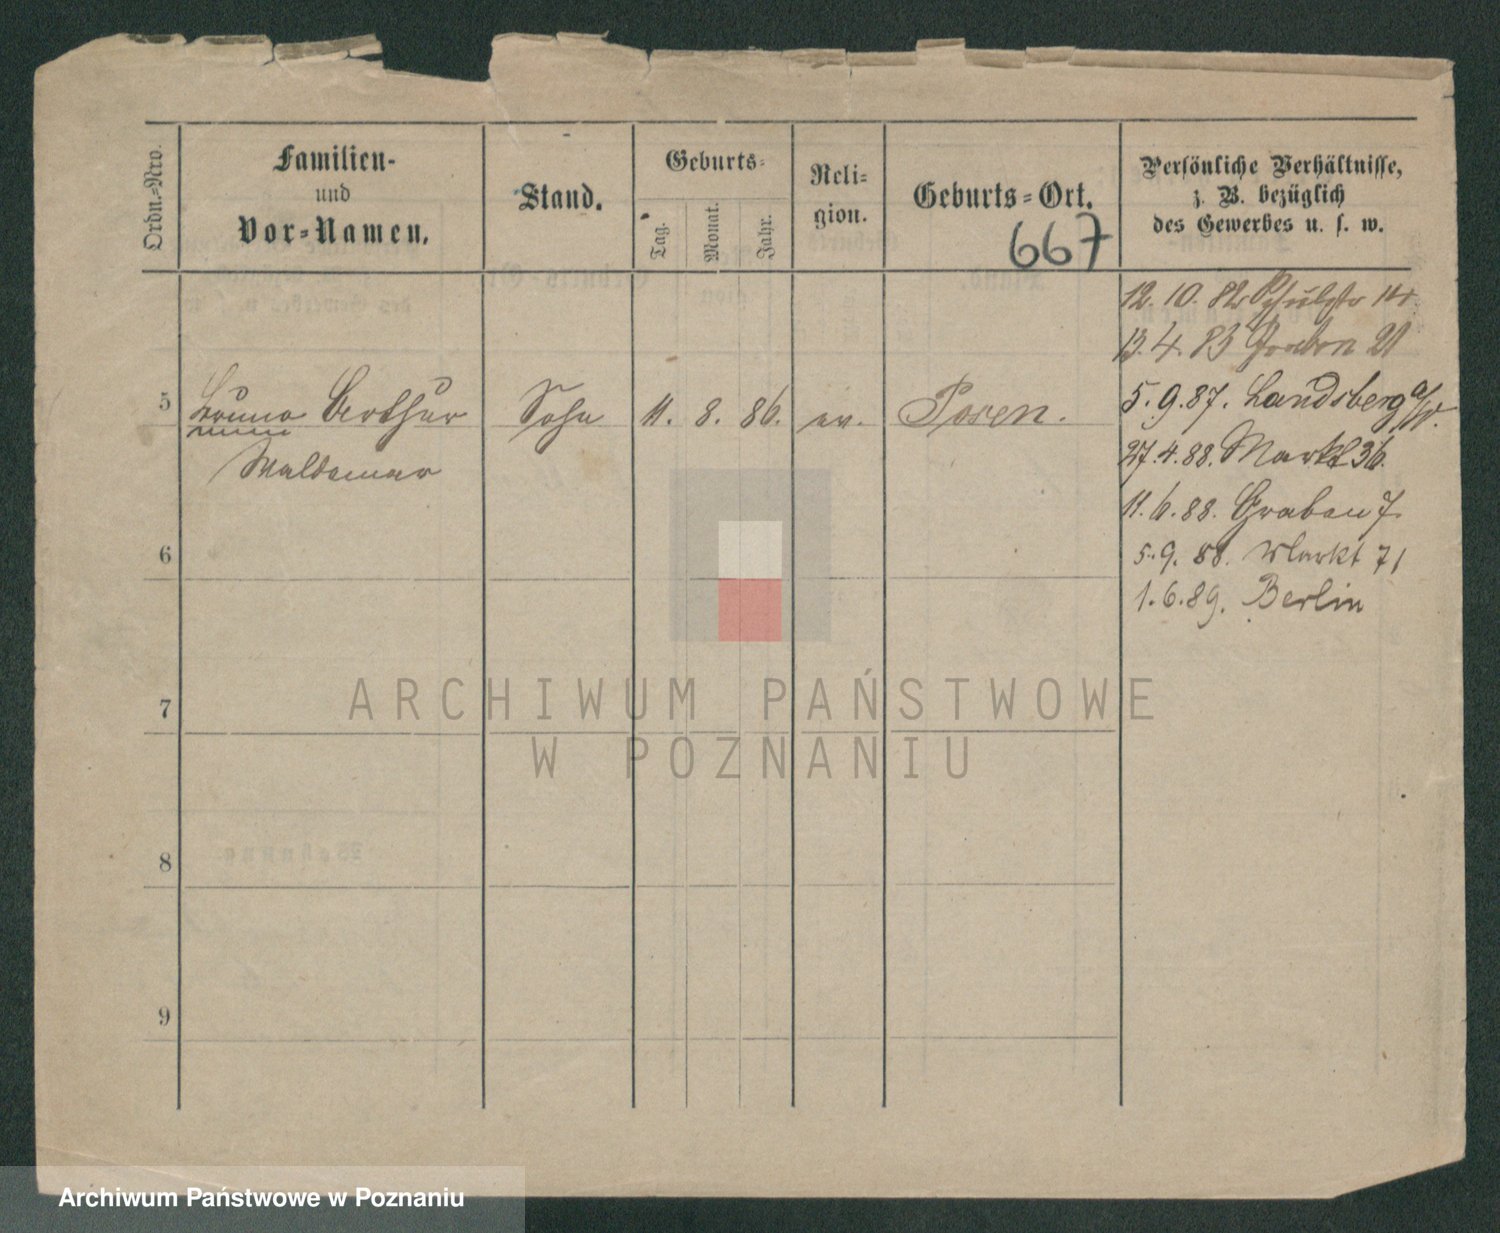 Ordn.-Nro.
Familien-
und
Vor-Namen.
Stand.
Geburts-
Tag.
Monat.
Jahr.
Reli-
gion.
Geburts-Ort.
667
Persönliche Verhältnisse,
z. B. bezüglich
des Gewerbes u. s. w.
12. 10. 82 Schulstr 14
13. 4. 83 Graben 21
5 Bruno Arthur Sohn 11. 8. 86. ev. Posen.
Waldemar
5. 9. 87. Landsberg a/W.
27. 4. 88. Markt 36.
11. 6. 88. Graben 7.
5. 9. 88. Markt 71
1. 6. 89. Berlin
6
7
8
9
ARCHIWUM PAŃSTWOWE
W POZNANIU
Archiwum Państwowe w Poznaniu